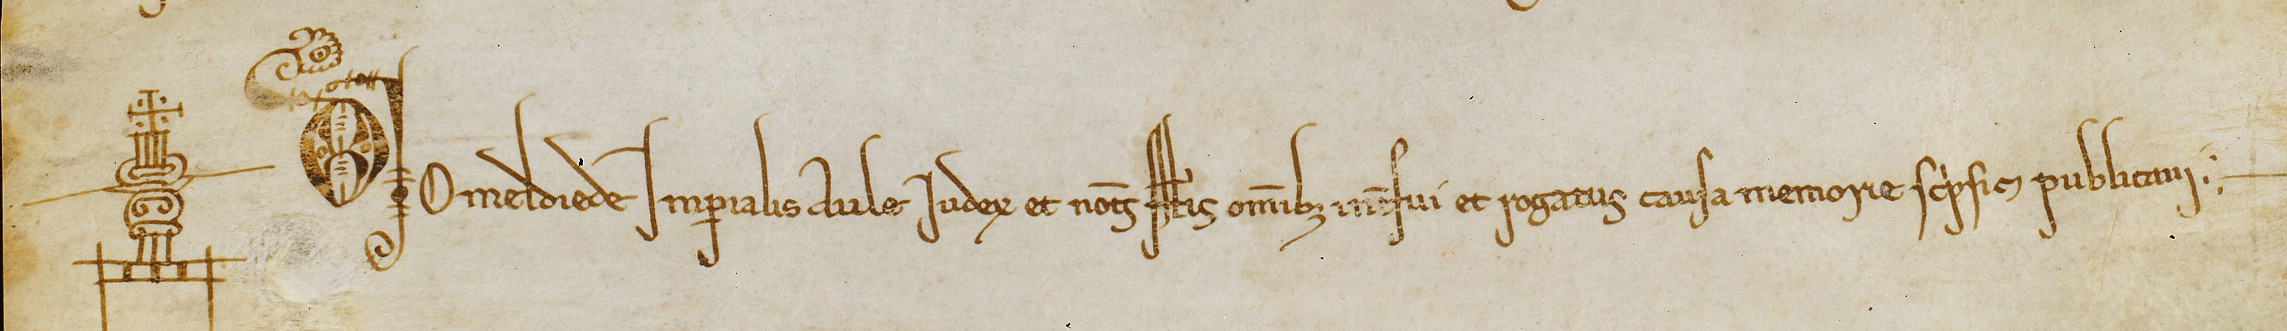 Omeldiede Imperialis Aule Iudex et not's istis omib; int'fui et rogatus causa memorie sc'psi et publicaui